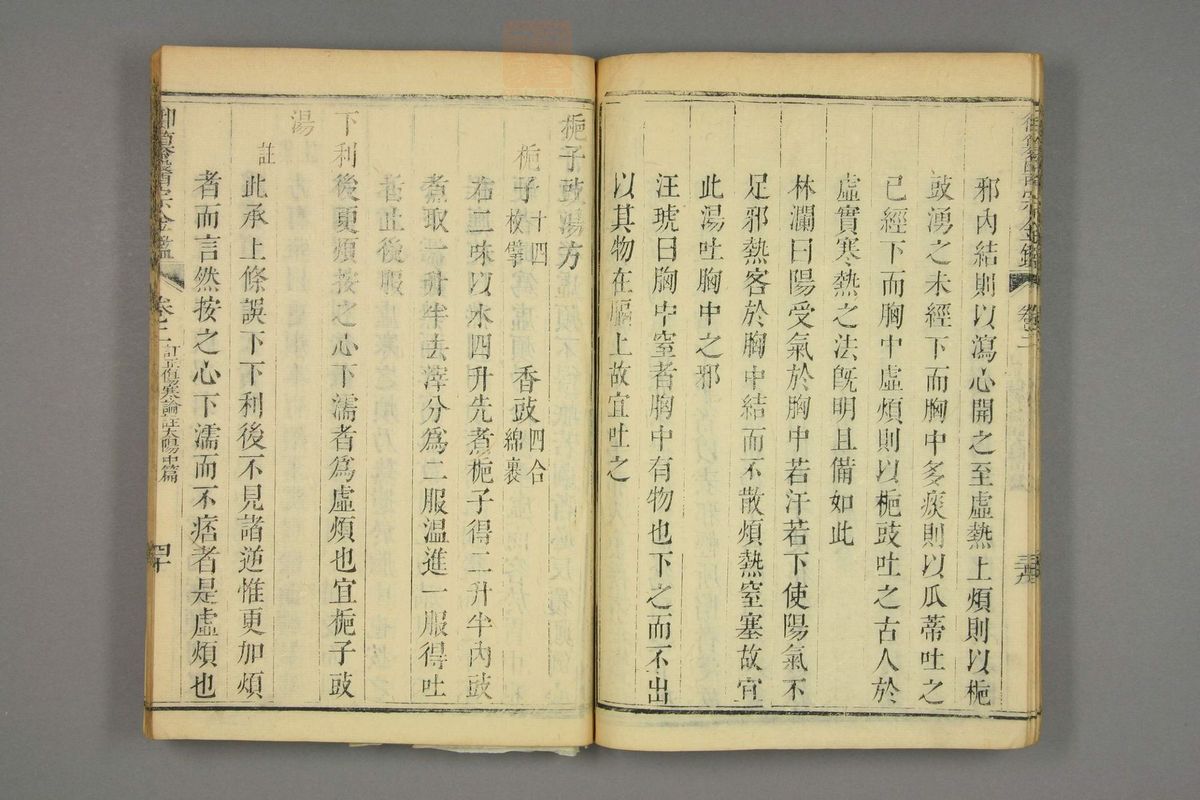 邪內結則以瀉心開之至虛熱上煩則以梔
豉湧之未經下而胸中多痰則以瓜蒂吐之
已經下而胸中虛煩則以梔豉吐之古人於
虛實寒熱之法旣明且備如此
林瀾曰陽受氣於胸中若汗若下使陽氣不
足邪熱客於胸中結而不散煩熱窒塞故宜
此湯吐胸中之邪
汪琥曰胸中窒者胸中有物也下之而不出
以其物在膈上故宜吐之
梔子豉湯方
梔子十四枚擘 香豉四合綿裹
右二味以水四升先煮梔子得二升半內豉
煮取一升半去滓分爲二服温進一服得吐
者止後服
下利後更煩按之心下濡者爲虛煩也宜梔子豉
湯
註此承上條誤下下利後不見諸逆惟更加煩
者而言然按之心下濡而不痞者是虛煩也
御篹醫宗金鑑 卷二 訂正傷寒論註太陽中篇 四十